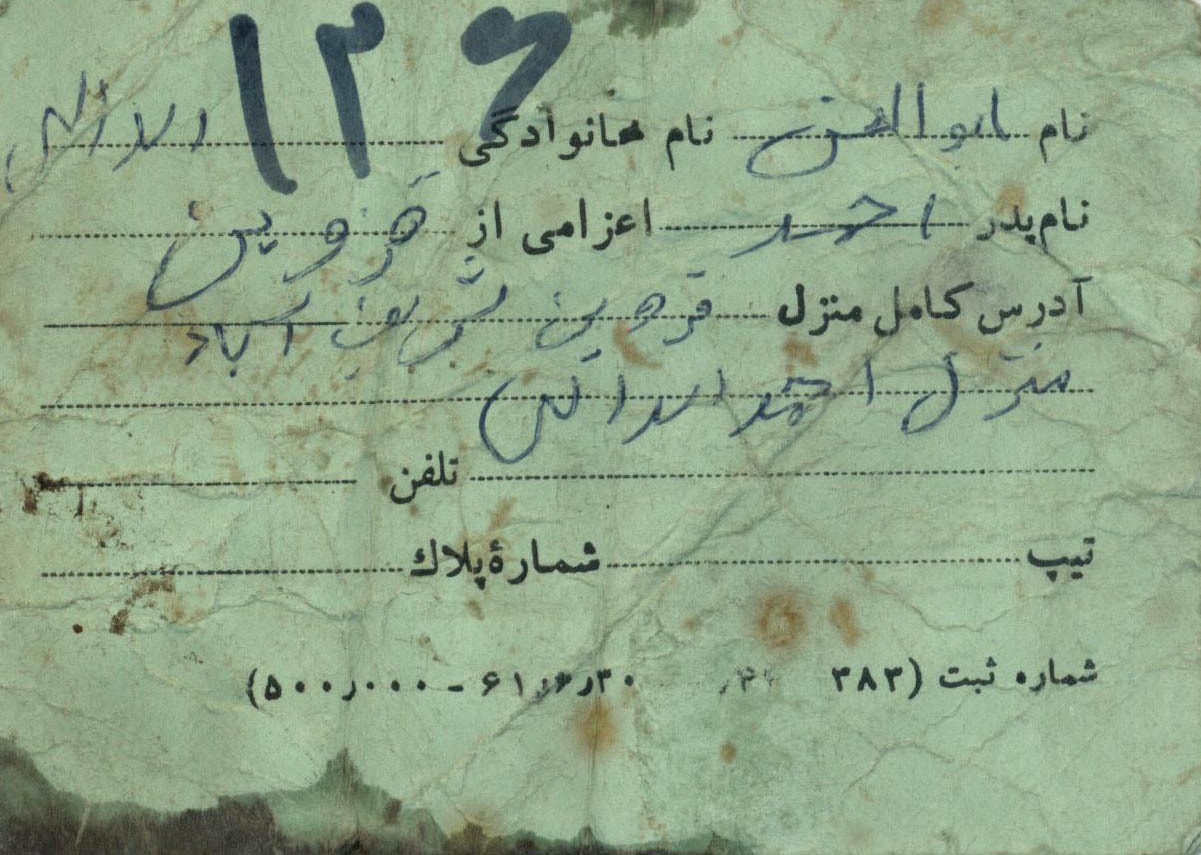 ۱۲۶
نام ابوالحسن نام خانوادگی
نام پدر احمد اعزامی از قزوین
آدرس کامل منزل قزوین شریف آباد
منزل احمد
تلفن
تیپ شمارهٔ پلاك
شماره ثبت (۳۸۳ ۶۱٫۶٫۳۰ - ۵۰۰٫۰۰۰)